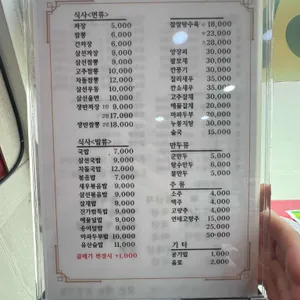 식사<면류>
짜장 5,000
짬뽕 6,000
간짜장 6,000
삼선짜장 9,000
삼선짬뽕 9,000
고추짬뽕 10,000
차돌짬뽕 12,000
삼선우동 10,000
삼선울면 10,000
쟁반짜장 9,000
17,000
쟁반짬뽕 18,000
식사<밥류>
국밥 7,000
삼선국밥 9,000
차돌국밥 12,000
볶음밥 7,000
새우볶음밥 9,000
삼선볶음밥 9,000
잡채밥 9,000
잡탕밥
송이덮밥
마파두부밥 10,000
유산슬밥 11,000
곱빼기 변경시 +1,000
찹쌀탕수육 18,000
23,000
28,000
양장피 30,000
팔보채 30,000
깐풍기 30,000
칠리새우 35,000
깐쇼새우 35,000
고추잡채 30,000
해물잡탕 35,000
마파두부 20,000
누룽지탕 30,000
술국 15,000
만두류
군만두 5,000
탕수만두 6,000
물만두 5,000
주류
소주 4,000
맥주 4,000
고량주 4,000
연태고량주 15,000
25,000
50,000
기타
공기밥 1,000
음료 2,000